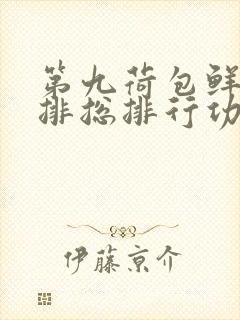 第九荷包鲜
排总排行功
伊藤京介